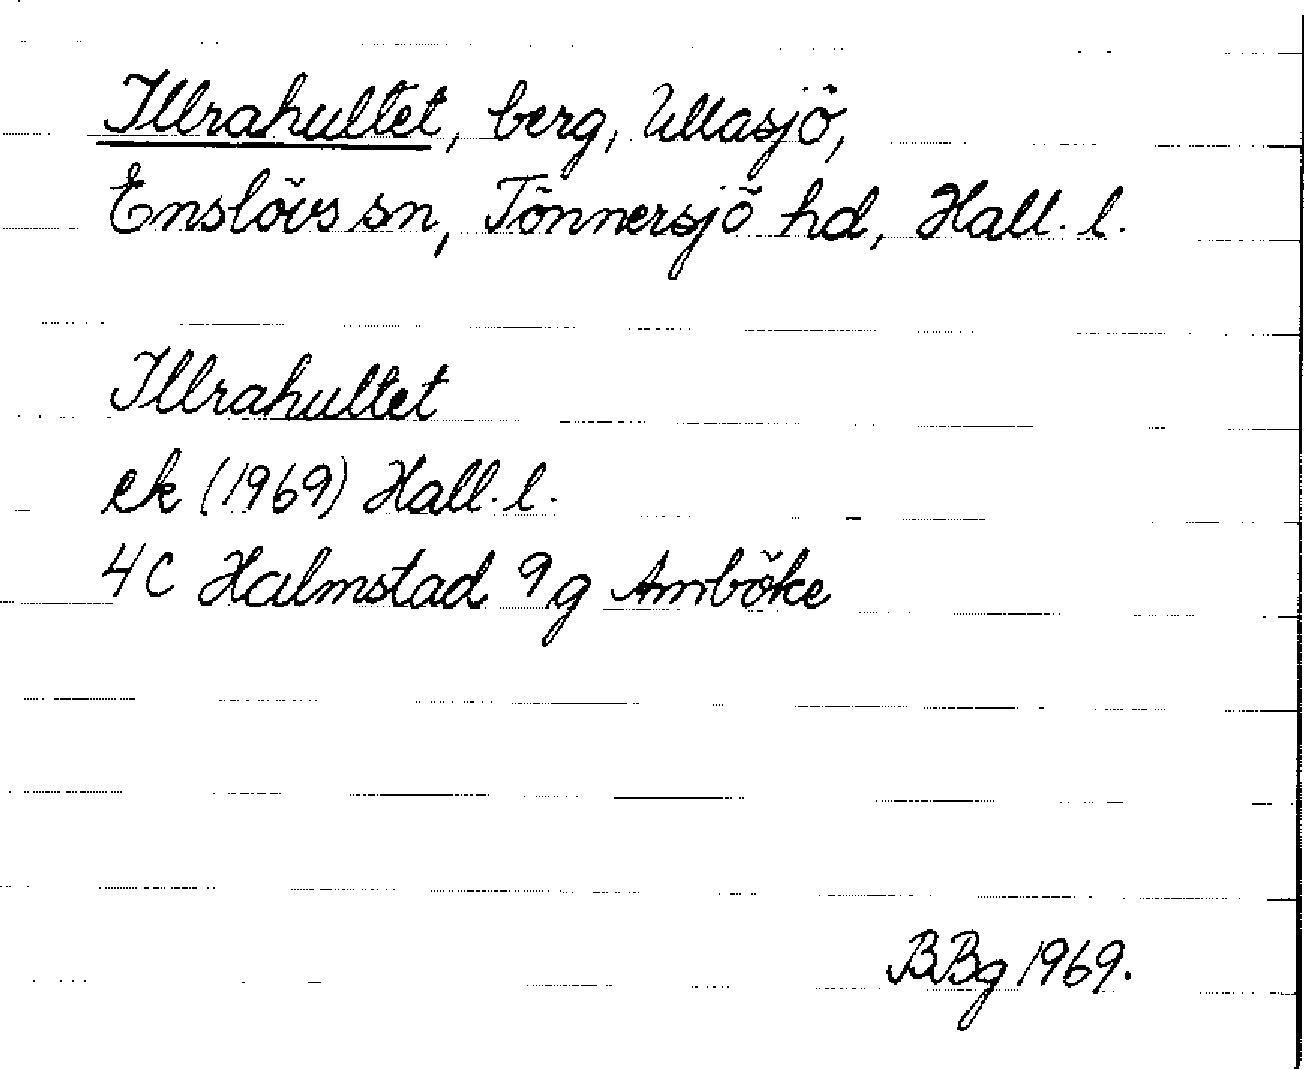 Illrahultet, berg, Ullasjö,
Enslövs sn, Tönnersjö hd, Hall. l.
Illrahultet
ek (1969) Hall. l.
4C Halmstad 9g Amböke
BBg 1969.